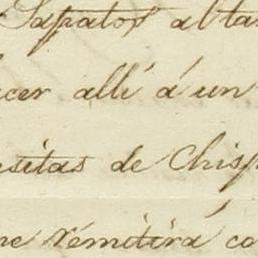 Sapatos al tan
acer alli á un
esitas de Chisp
ne rémitirá co